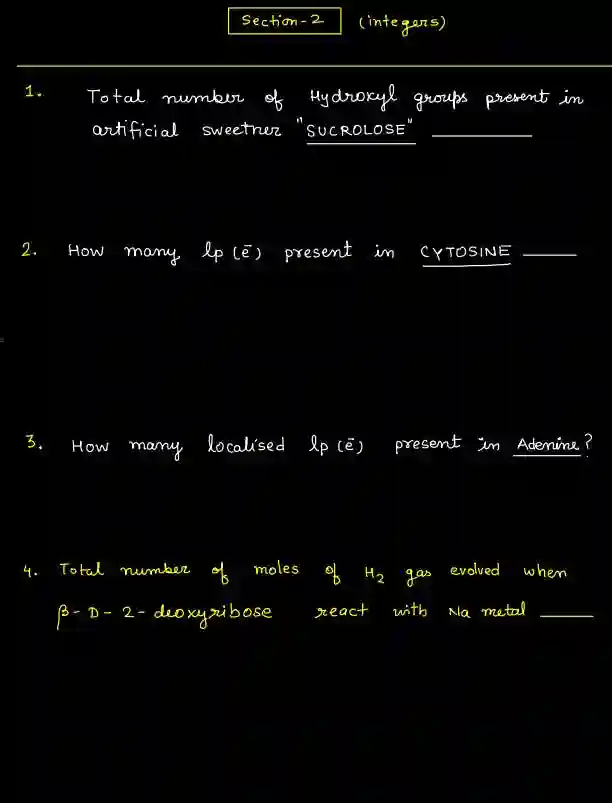 Section-2 (integers)
1. Total number of Hydroxyl groups present in
artificial sweetner "SUCROLOSE" ________
2. How many lp (ē) present in CYTOSINE ____
3. How many localised lp (ē) present in Adenine?
4. Total number of moles of H₂ gas evolved when
β-D-2-deoxyribose react with Na metal ____